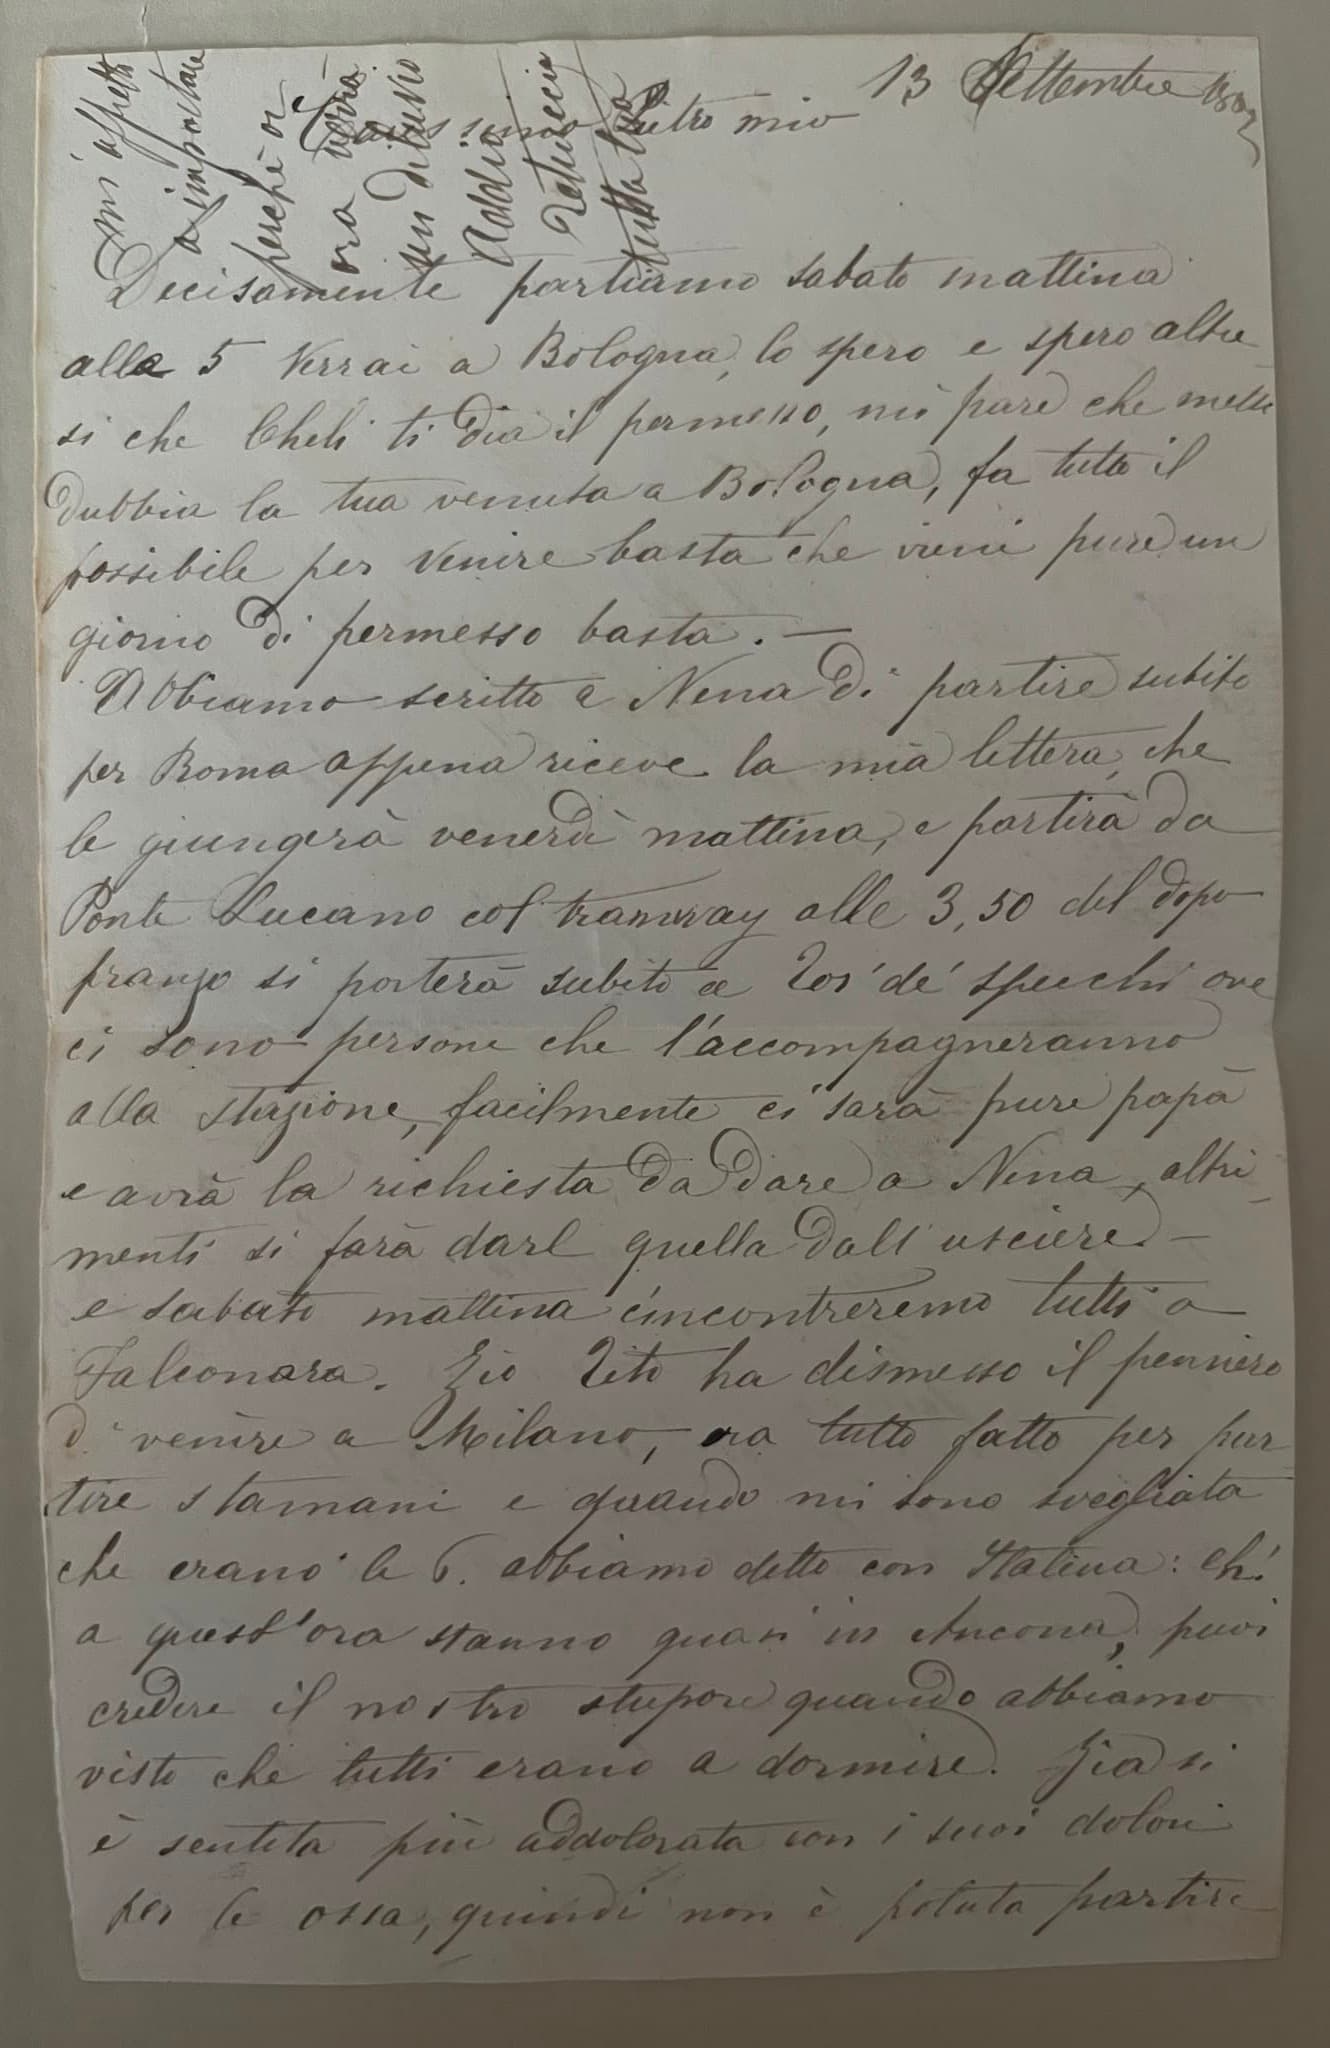 13 Settembre
Carissimo Pietro mio
Decisamente partiamo sabato mattina
alle 5 Verrai a Bologna, lo spero e spero altre-
si che Cheli ti dia il permesso, mi pare che mette
dubbia la tua venuta a Bologna, fa tutto il
possibile per venire basta che vieni pure un
giorno di permesso basta. —
Abbiamo scritto a Nena di partire subito
per Roma appena riceve la mia lettera, che
le giungerà venerdì mattina, e partirà da
Ponte Lucano col tramway alle 3,50 del dopo
pranzo si porterà subito a Tor' de' Specchi ove
ci sono persone che l'accompagneranno
alla stazione, facilmente ci sarà pure papà
e avrà la richiesta da dare a Nena, altri-
menti si farà dare quella dall'usciere. —
e sabato mattina c'incontreremo tutti a
Falconara. Zio Tito ha dismesso il pensiero
di venire a Milano, era tutto fatto per par-
tire stamani e quando mi sono svegliata
che erano le 6. abbiamo detto con Italina: Eh!
a quest'ora stanno quasi in Ancona, puoi
credere il nostro stupore quando abbiamo
visto che tutti erano a dormire. Zia si
è sentita più addolorata con i suoi dolori
per le ossa, quindi non è potuta partire
mi affretto
a impostare
perchè or
ora verrà
un diluvio
Addio
Pietruccio
tutta tua